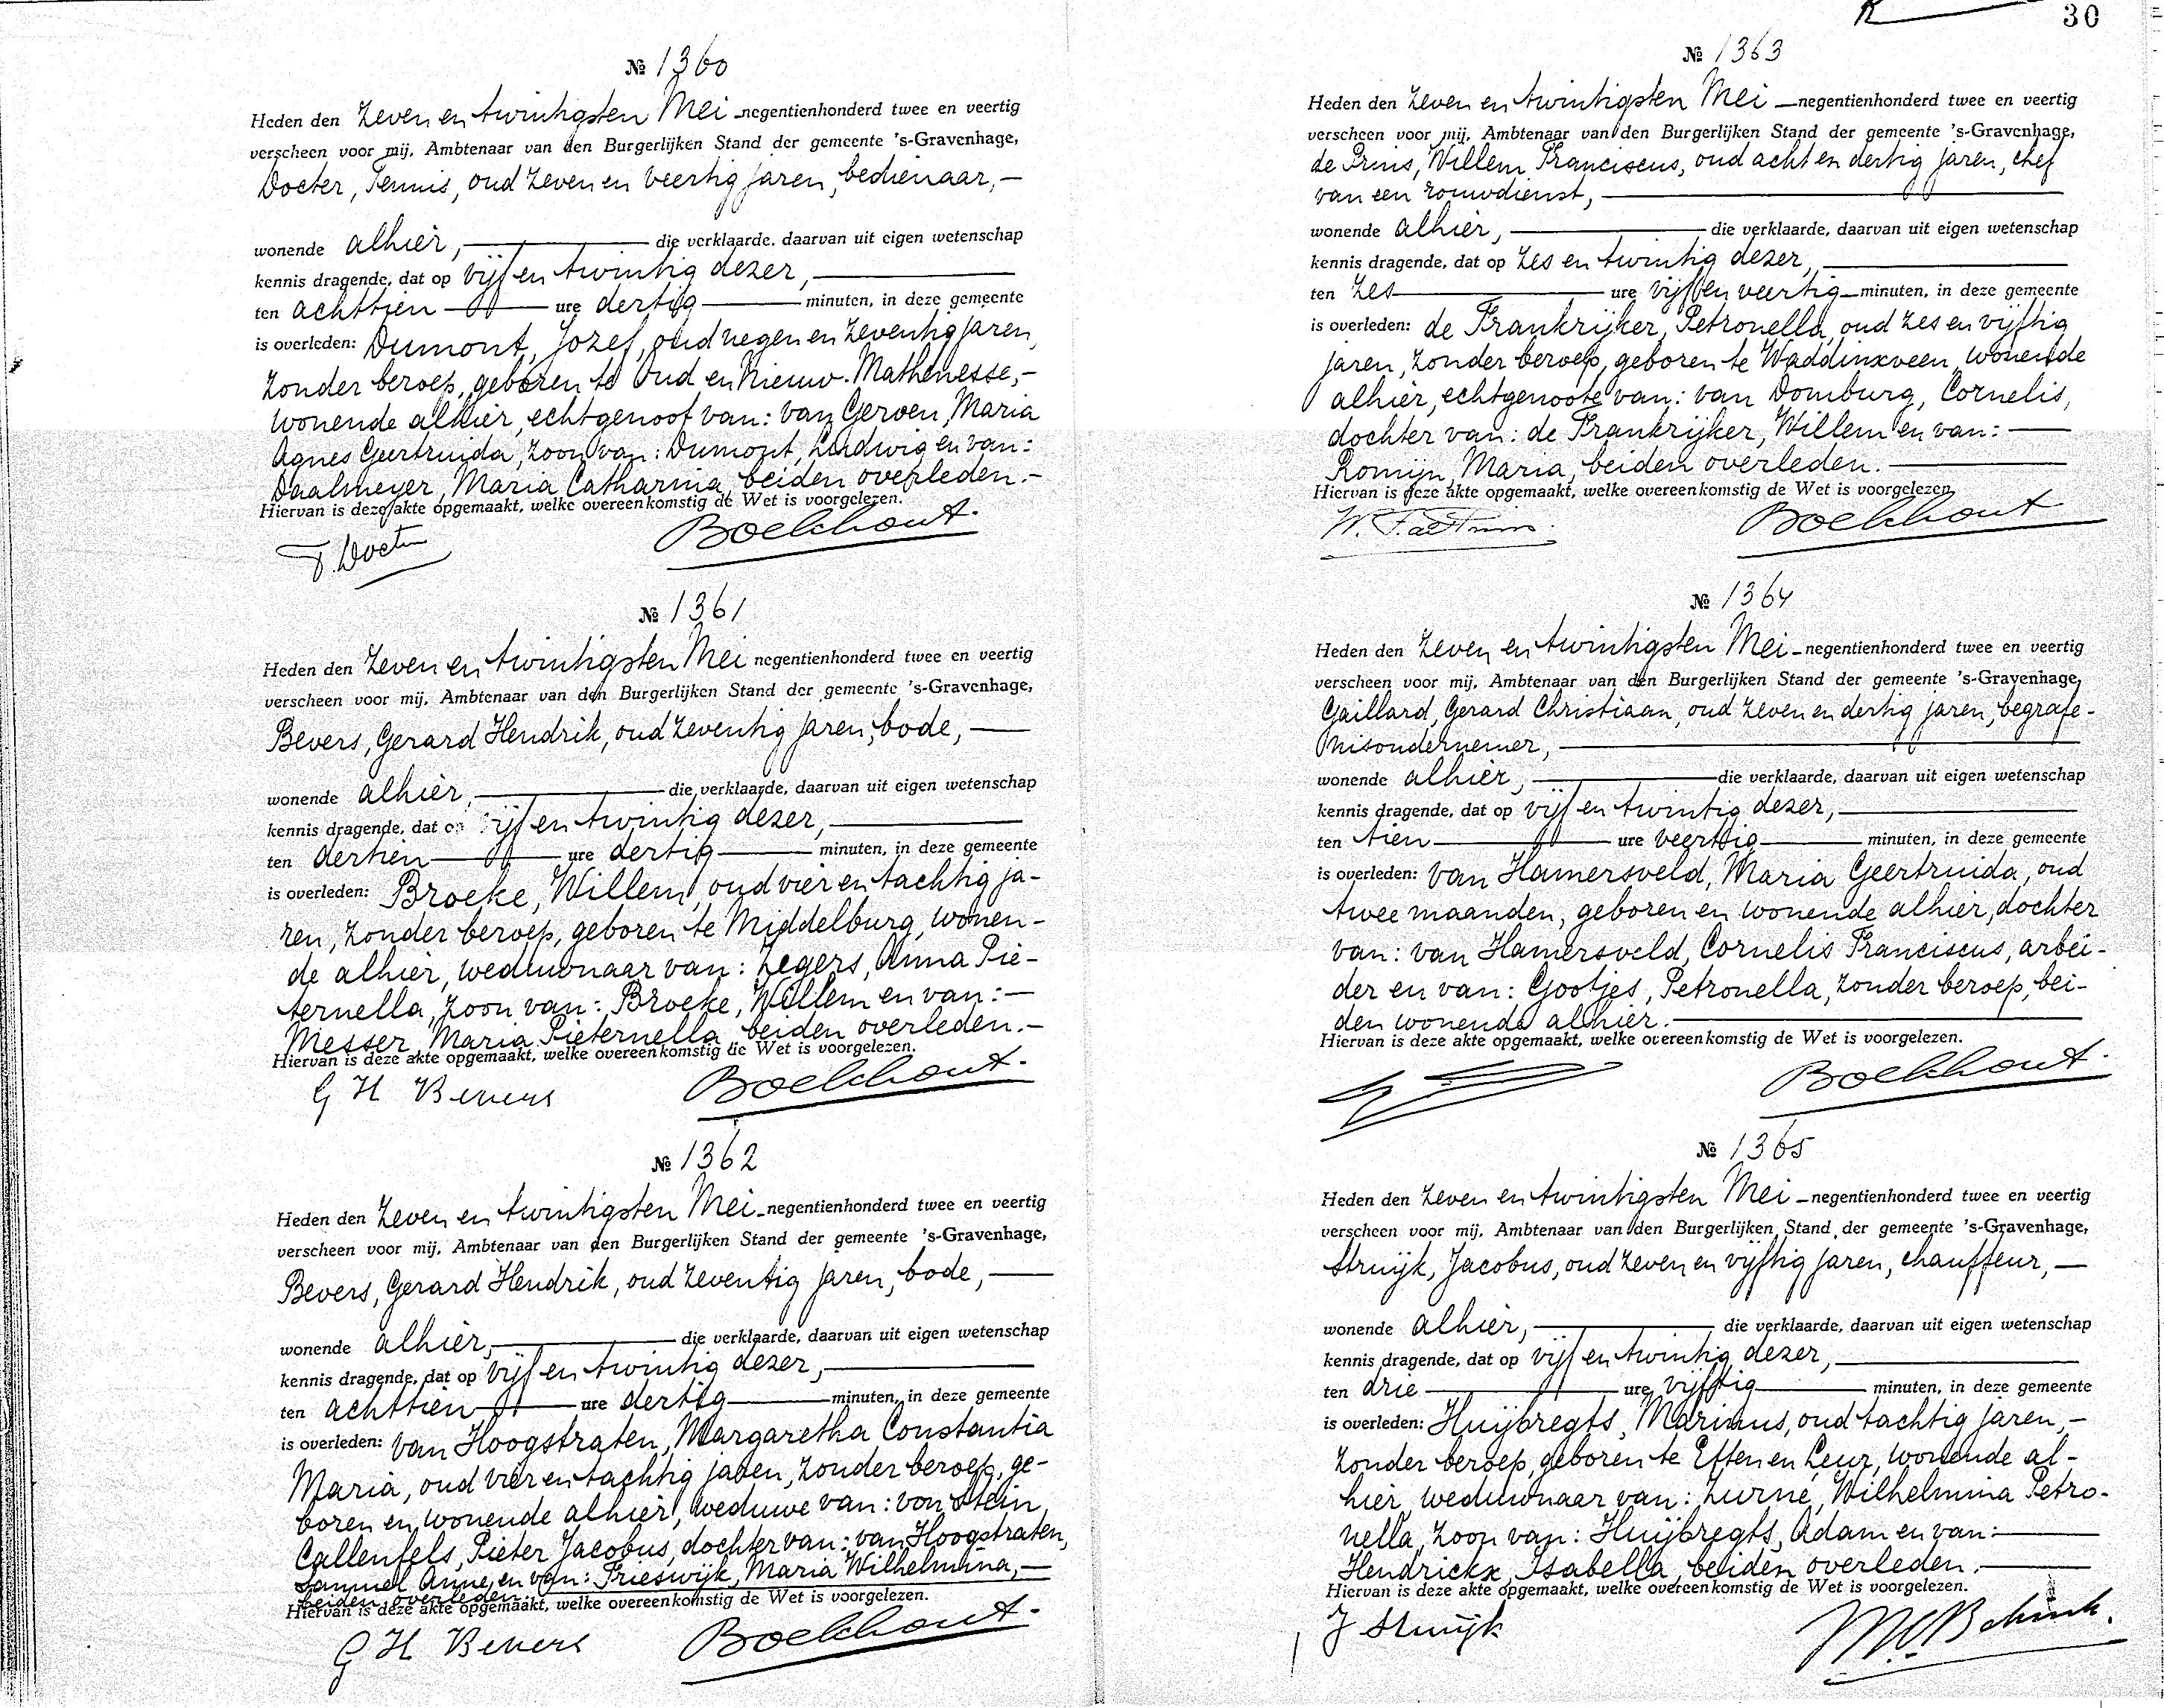 № 1360
Heden den Zeven en twintigsten Mei negentienhonderd twee en veertig
verscheen voor mij, Ambtenaar van den Burgerlijken Stand der gemeente 's-Gravenhage,
Docter, Teunis, oud zeven en veertig jaren, bedienaar,
wonende alhier, die verklaarde, daarvan uit eigen wetenschap
kennis dragende, dat op vijf en twintig dezer,
ten achttien ure dertig minuten, in deze gemeente
is overleden: Dumont, Jozef, oud negen en zeventig jaren,
zonder beroep, geboren te Oud en Nieuw-Mathenesse,
wonende alhier, echtgenoot van: van Gerven, Maria
Agnes Geertruida, zoon van: Dumont, Ludwig en van:
Daalmeyer, Maria Catharina, beiden overleden.
Hiervan is deze akte opgemaakt, welke overeenkomstig de Wet is voorgelezen.
Boekhout.
№ 1361
Heden den Zeven en twintigsten Mei negentienhonderd twee en veertig
verscheen voor mij, Ambtenaar van den Burgerlijken Stand der gemeente 's-Gravenhage,
Bevers, Gerard Hendrik, oud zeventig jaren, bode,
wonende alhier, die verklaarde, daarvan uit eigen wetenschap
kennis dragende, dat op vijf en twintig dezer,
ten dertien ure dertig minuten, in deze gemeente
is overleden: Broeke, Willem, oud vier en tachtig ja-
ren, zonder beroep, geboren te Middelburg, wonen-
de alhier, weduwnaar van: Zegers, Anna Pie-
ternella, zoon van: Broeke, Willem en van:
Messer, Maria Pieternella, beiden overleden.
Hiervan is deze akte opgemaakt, welke overeenkomstig de Wet is voorgelezen.
G H Bevers Boekhout.
№ 1362
Heden den Zeven en twintigsten Mei negentienhonderd twee en veertig
verscheen voor mij, Ambtenaar van den Burgerlijken Stand der gemeente 's-Gravenhage,
Bevers, Gerard Hendrik, oud zeventig jaren, bode,
wonende alhier, die verklaarde, daarvan uit eigen wetenschap
kennis dragende, dat op vijf en twintig dezer,
ten achttien ure dertig minuten, in deze gemeente
is overleden: van Hoogstraten, Margaretha Constantia
Maria, oud vier en tachtig jaren, zonder beroep, ge-
boren en wonende alhier, weduwe van: von Stein
Callenfels, Pieter Jacobus, dochter van: van Hoogstraten,
Samuel Anne, en van: Frieswijk, Maria Wilhelmina,
beiden overleden.
Hiervan is deze akte opgemaakt, welke overeenkomstig de Wet is voorgelezen.
G H Bevers Boekhout.
30
№ 1363
Heden den Zeven en twintigsten Mei negentienhonderd twee en veertig
verscheen voor mij, Ambtenaar van den Burgerlijken Stand der gemeente 's-Gravenhage,
de Prins, Willem Franciscus, oud acht en dertig jaren, chef
van een rouwdienst,
wonende alhier, die verklaarde, daarvan uit eigen wetenschap
kennis dragende, dat op zes en twintig dezer,
ten zes ure vijf en veertig minuten, in deze gemeente
is overleden: de Frankrijker, Petronella, oud zes en vijftig
jaren, zonder beroep, geboren te Waddinxveen, wonende
alhier, echtgenoote van: van Domburg, Cornelis,
dochter van: de Frankrijker, Willem en van:
Romijn, Maria, beiden overleden.
Hiervan is deze akte opgemaakt, welke overeenkomstig de Wet is voorgelezen.
Boekhout
№ 1364
Heden den Zeven en twintigsten Mei negentienhonderd twee en veertig
verscheen voor mij, Ambtenaar van den Burgerlijken Stand der gemeente 's-Gravenhage,
Gaillard, Gerard Christiaan, oud zeven en dertig jaren, begrafe-
nisondernemer,
wonende alhier, die verklaarde, daarvan uit eigen wetenschap
kennis dragende, dat op vijf en twintig dezer,
ten tien ure veertig minuten, in deze gemeente
is overleden: van Hamersveld, Maria Geertruida, oud
twee maanden, geboren en wonende alhier, dochter
van: van Hamersveld, Cornelis Franciscus, arbei-
der en van: Gootjes, Petronella, zonder beroep, bei-
den wonende alhier.
Hiervan is deze akte opgemaakt, welke overeenkomstig de Wet is voorgelezen.
Boekhout.
№ 1365
Heden den Zeven en twintigsten Mei negentienhonderd twee en veertig
verscheen voor mij, Ambtenaar van den Burgerlijken Stand der gemeente 's-Gravenhage,
Struijk, Jacobus, oud zeven en vijftig jaren, chauffeur,
wonende alhier, die verklaarde, daarvan uit eigen wetenschap
kennis dragende, dat op vijf en twintig dezer,
ten drie ure vijftig minuten, in deze gemeente
is overleden: Huijbregts, Marinus, oud tachtig jaren,
zonder beroep, geboren te Etten en Leur, wonende al-
hier, weduwnaar van: Zurné, Wilhelmina Petro-
nella, zoon van: Huijbregts, Adam en van:
Hendrickx, Isabella, beiden overleden.
Hiervan is deze akte opgemaakt, welke overeenkomstig de Wet is voorgelezen.
J Struijk